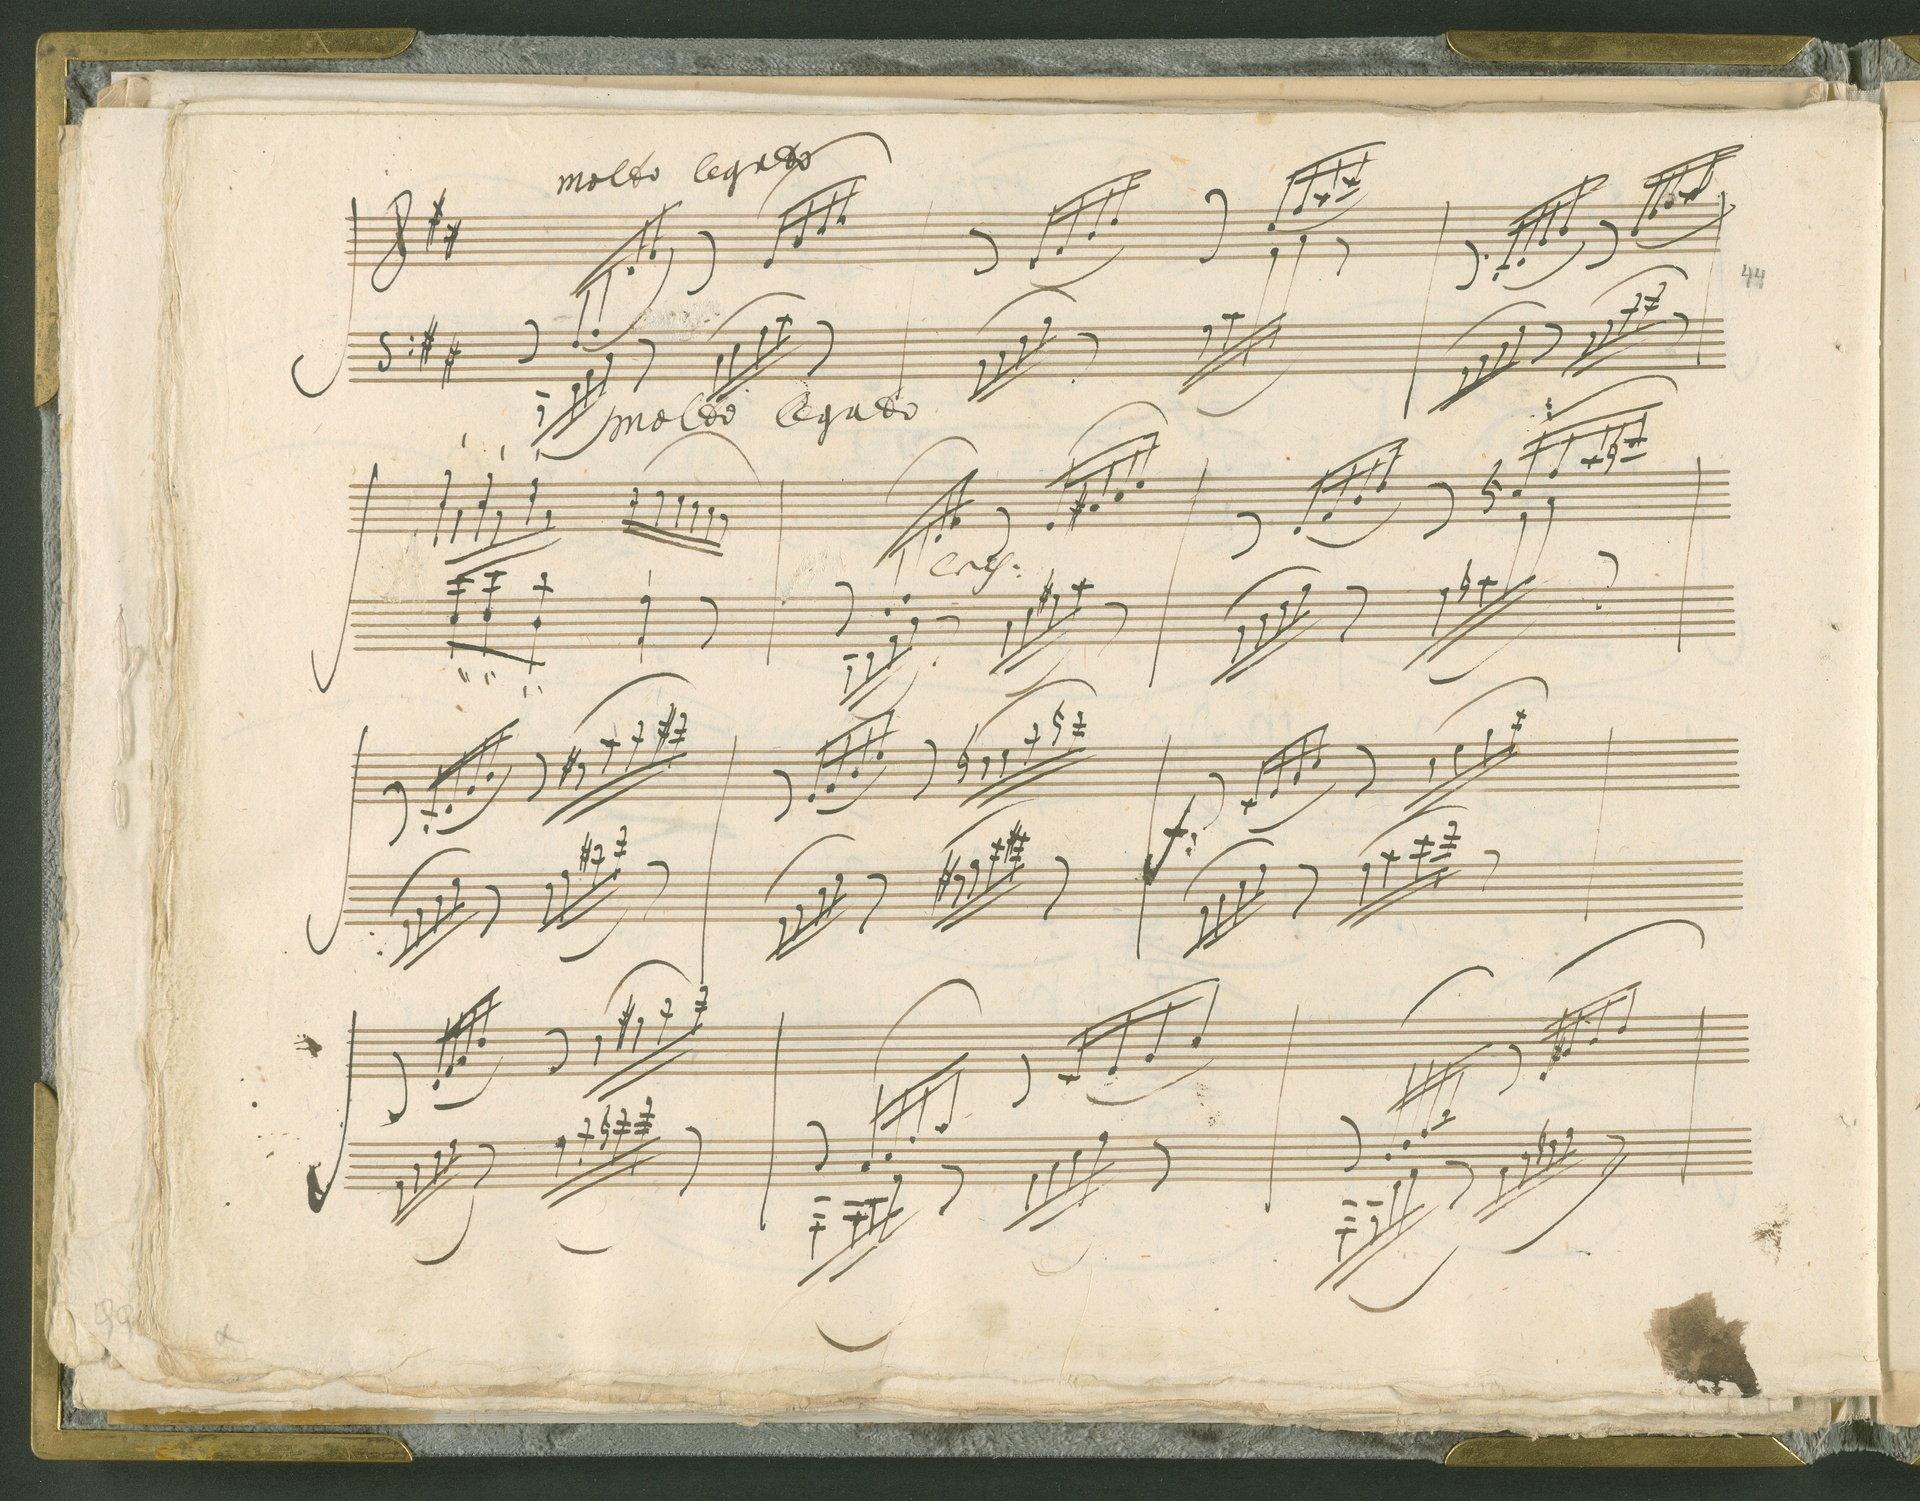 molto legato
44
molto legato
cresc:
f: